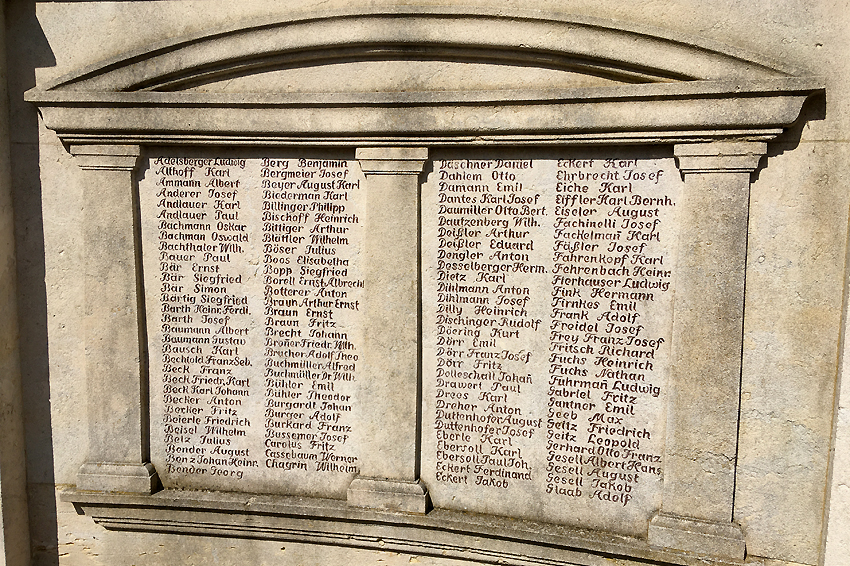 Adelsberger Ludwig
Althoff Karl
Ammann Albert
Anderer Josef
Andlauer Karl
Andlauer Paul
Bachmann Oskar
Bachman Oswald
Bachthaler Wilh.
Bauer Paul
Bär Ernst
Bär Siegfried
Bär Simon
Bärtig Siegfried
Barth Heinr. Ferdi.
Barth Josef
Baumann Albert
Baumann Gustav
Bausch Karl
Bechtold Franz Seb.
Beck Franz
Beck Friedr. Karl
Beck Karl Johann
Becker Anton
Becker Fritz
Beierle Friedrich
Beisel Wilhelm
Belz Julius
Bender August
Benz Johan Heinr.
Bender Georg
Berg Benjamin
Bergmeier Josef
Beyer August Karl
Biederman Karl
Billinger Philipp
Bischoff Heinrich
Bittiger Arthur
Blättler Wilhelm
Böser Julius
Boos Elisabetha
Bopp Siegfried
Borell Ernst Albrecht
Botterer Anton
Braun Arthur Ernst
Braun Ernst
Braun Fritz
Brecht Johann
Broner Friedr. Wilh.
Brucher Adolf Theo
Buchmüller Alfred
Buchmüller Dr Wilh.
Bühler Emil
Bühler Theodor
Burgardt Johan
Burger Adolf
Burkard Franz
Bussemer Josef
Carolus Fritz
Cassebaum Werner
Chagrin Wilhelm
Däschner Daniel
Dahlem Otto
Damann Emil
Dantes Karl Josef
Daumiller Otto Bert.
Dautzenberg Wilh.
Deißler Arthur
Deißler Eduard
Dengler Anton
Desselberger Herm.
Dietz Karl
Dihlmann Anton
Dihlmann Josef
Dilly Heinrich
Dischinger Rudolf
Döering Kurt
Dörr Emil
Dörr Franz Josef
Dörr Fritz
Dolleschall Johañ
Drawert Paul
Drees Karl
Dreher Anton
Duttenhofer August
Duttenhofer Josef
Eberle Karl
Ebersoll Karl
Ebersoll Paul Joh.
Eckert Ferdinand
Eckert Jakob
Eckert Karl
Ehrbrecht Josef
Eiche Karl
Eiffler Karl Bernh.
Eiseler August
Fachinelli Josef
Fackelmañ Karl
Fäßler Josef
Fahrenkopf Karl
Fehrenbach Heinr.
Fierhauser Ludwig
Fink Hermann
Firnkes Emil
Frank Adolf
Freidel Josef
Frey Franz Josef
Fritsch Richard
Fuchs Heinrich
Fuchs Nathan
Fuhrman Ludwig
Gabriel Fritz
Gantner Emil
Geeb Max
Geitz Friedrich
Geitz Leopold
Gerhard Otto Franz
Gesell Albert Hans
Gesell August
Gesell Jakob
Glaab Adolf